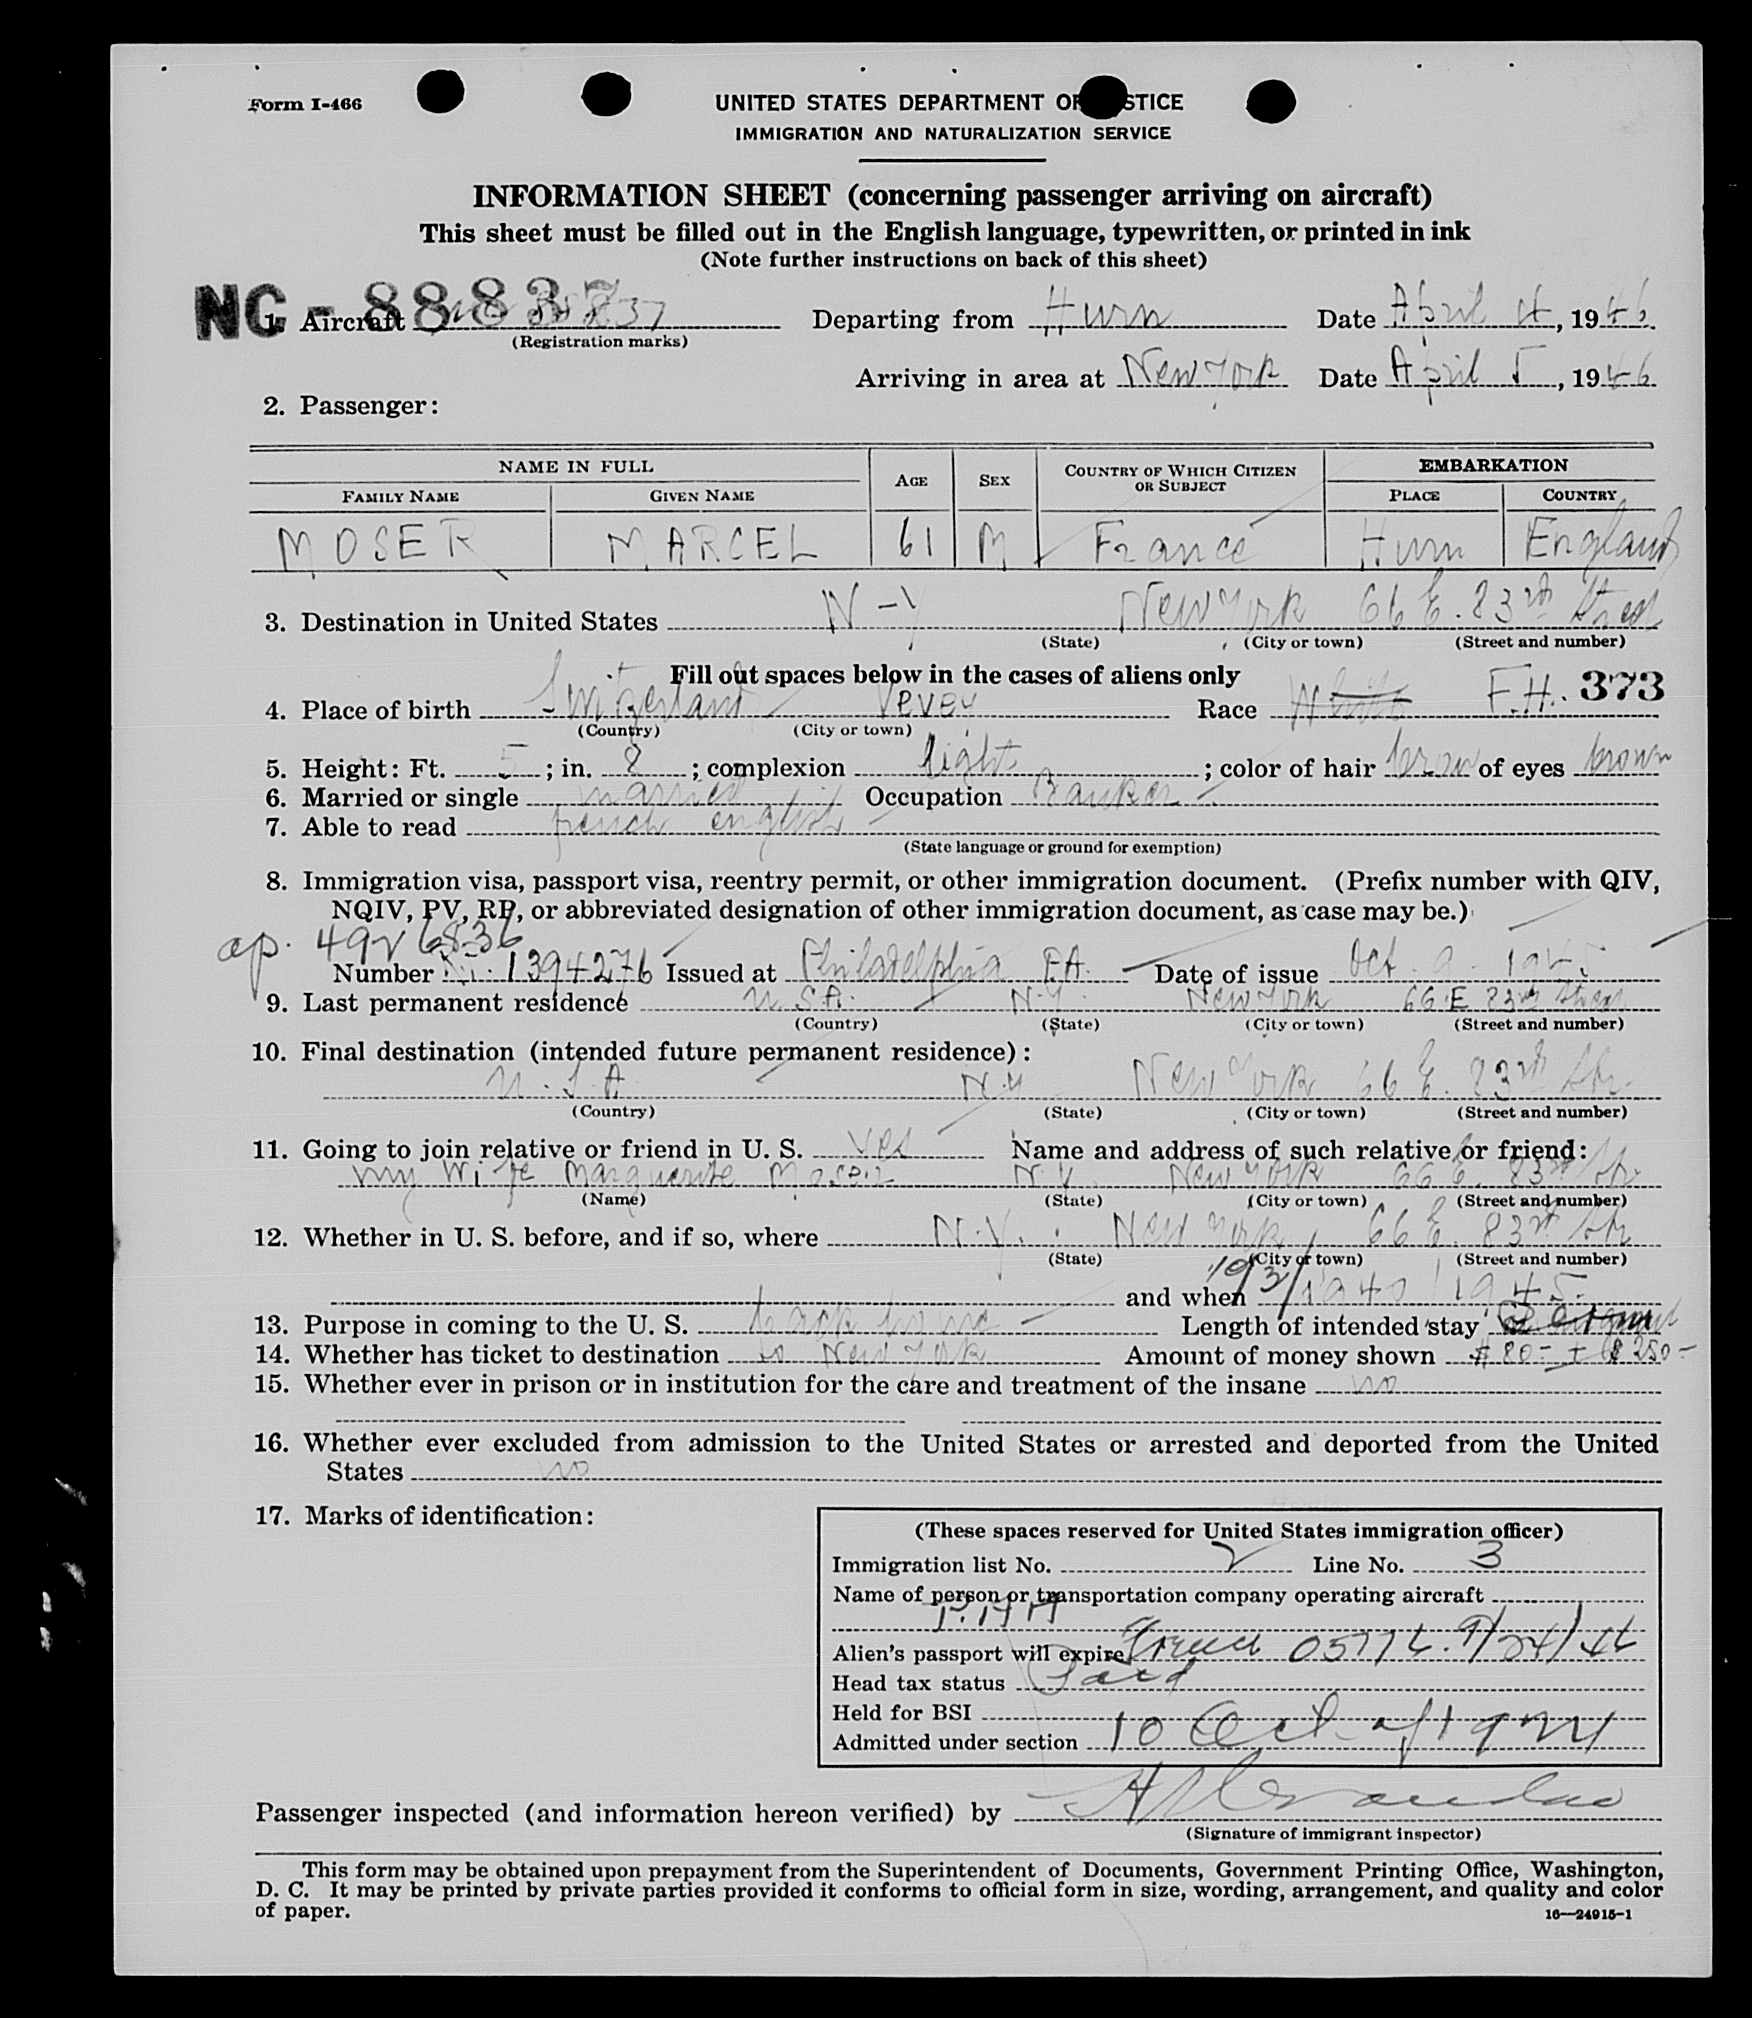 Form I-466
UNITED STATES DEPARTMENT OF JUSTICE
IMMIGRATION AND NATURALIZATION SERVICE
INFORMATION SHEET (concerning passenger arriving on aircraft)
This sheet must be filled out in the English language, typewritten, or printed in ink
(Note further instructions on back of this sheet)
NC - 88837
1. Aircraft Departing from Hurn Date April 4, 1946
(Registration marks)
Arriving in area at New York Date April 5, 1946
2. Passenger:
NAME IN FULL AGE SEX COUNTRY OF WHICH CITIZEN OR SUBJECT EMBARKATION
FAMILY NAME GIVEN NAME PLACE COUNTRY
MOSER MARCEL 61 M France Hurn England
3. Destination in United States N-Y New York 66 E. 83rd Street
(State) (City or town) (Street and number)
Fill out spaces below in the cases of aliens only
4. Place of birth Switzerland Vevey Race White F.H. 373
(Country) (City or town)
5. Height: Ft. 5; in. 8; complexion light; color of hair brow of eyes brown
6. Married or single married Occupation Banker
7. Able to read french english
(State language or ground for exemption)
8. Immigration visa, passport visa, reentry permit, or other immigration document. (Prefix number with QIV,
NQIV, PV, RP, or abbreviated designation of other immigration document, as case may be.)
ap. 49r 6836
Number 1394276 Issued at Philadelphia PA. Date of issue Oct. 9. 1945
9. Last permanent residence U.S.A. N.Y. New York 66 E 83rd Street
(Country) (State) (City or town) (Street and number)
10. Final destination (intended future permanent residence):
U.S.A N.Y New York 66 E. 83rd Str.
(Country) (State) (City or town) (Street and number)
11. Going to join relative or friend in U. S. Yes Name and address of such relative or friend:
my wife Marguerite Moser N.Y. New York 66 E. 83rd Str.
(Name) (State) (City or town) (Street and number)
12. Whether in U. S. before, and if so, where N.Y. New York 66 E. 83rd Str
(State) (City or town) (Street and number)
and when 10/3/1940 1945.
13. Purpose in coming to the U. S. back home Length of intended stay
14. Whether has ticket to destination to New York Amount of money shown $ 80.- + $ 250-
15. Whether ever in prison or in institution for the care and treatment of the insane no
16. Whether ever excluded from admission to the United States or arrested and deported from the United
States no
17. Marks of identification:
(These spaces reserved for United States immigration officer)
Immigration list No. 2 Line No. 3
Name of person or transportation company operating aircraft
P.A.A
Alien's passport will expire French 9/24/46
Head tax status Paid
Held for BSI
Admitted under section 10 Act of 1924
Passenger inspected (and information hereon verified) by
(Signature of immigrant inspector)
This form may be obtained upon prepayment from the Superintendent of Documents, Government Printing Office, Washington,
D. C. It may be printed by private parties provided it conforms to official form in size, wording, arrangement, and quality and color
of paper.
16—24915-1